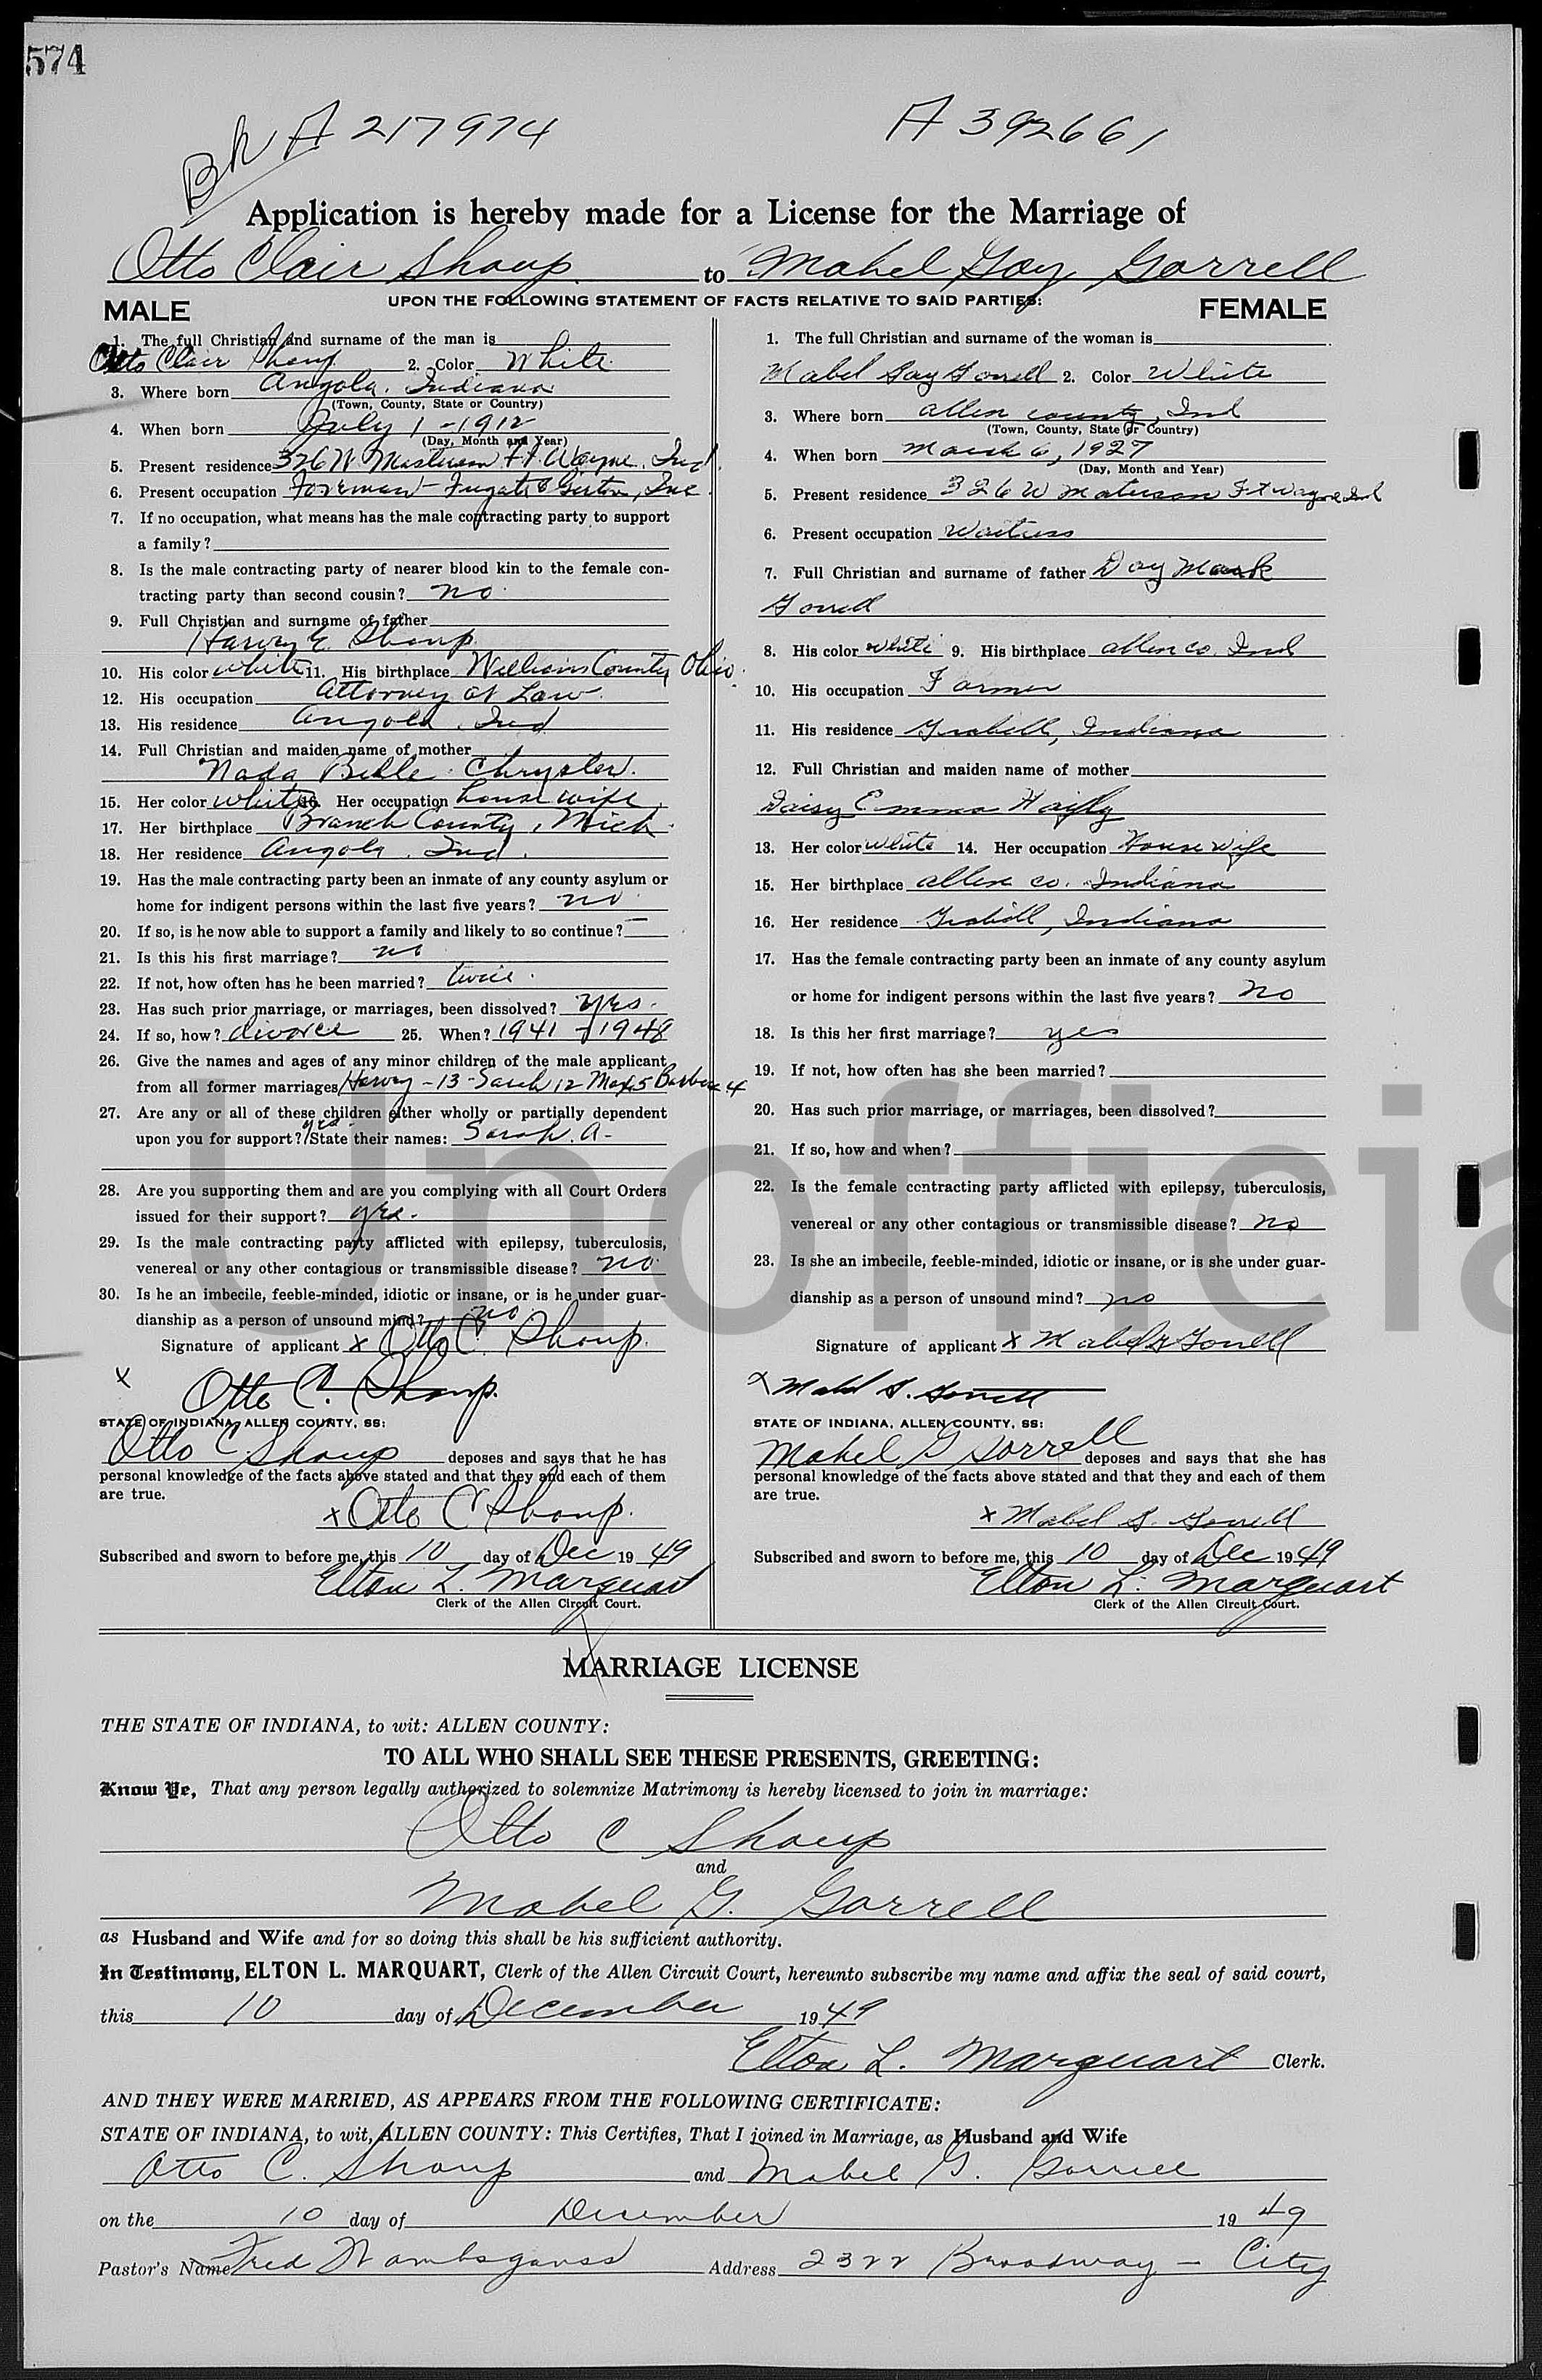 574
A 217974
A 392661
Application is hereby made for a License for the Marriage of
Otto Clair Shoup to Mabel Gay Gorrell
UPON THE FOLLOWING STATEMENT OF FACTS RELATIVE TO SAID PARTIES:
MALE
1. The full Christian and surname of the man is
Otto Clair Shoup 2. Color White
3. Where born Angola, Indiana
(Town, County, State or Country)
4. When born July 1 - 1912
(Day, Month and Year)
5. Present residence 326 W Ft. Wayne, Ind.
6. Present occupation Foreman - Fugate & Girton, Inc.
7. If no occupation, what means has the male contracting party to support
a family?
8. Is the male contracting party of nearer blood kin to the female con-
tracting party than second cousin? no
9. Full Christian and surname of father
Harvey E. Shoup
10. His color white 11. His birthplace Williams County, Ohio.
12. His occupation Attorney at Law
13. His residence Angola, Ind
14. Full Christian and maiden name of mother
Nada Belle Chrysler.
15. Her color white 16. Her occupation housewife
17. Her birthplace Branch County, Mich.
18. Her residence Angola, Ind.
19. Has the male contracting party been an inmate of any county asylum or
home for indigent persons within the last five years? no
20. If so, is he now able to support a family and likely to so continue? —
21. Is this his first marriage? no
22. If not, how often has he been married? twice.
23. Has such prior marriage, or marriages, been dissolved? yes.
24. If so, how? divorce 25. When? 1941 - 1948
26. Give the names and ages of any minor children of the male applicant
from all former marriages Harvey - 13 - Sarah 12 Max 5 Barbara 4
27. Are any or all of these children either wholly or partially dependent
upon you for support? yes State their names: Sarah. A -
28. Are you supporting them and are you complying with all Court Orders
issued for their support? yes.
29. Is the male contracting party afflicted with epilepsy, tuberculosis,
venereal or any other contagious or transmissible disease? no
30. Is he an imbecile, feeble-minded, idiotic or insane, or is he under guar-
dianship as a person of unsound mind? no
Signature of applicant x Otto C. Shoup.
x Otto C. Shoup.
STATE OF INDIANA, ALLEN COUNTY, SS:
Otto C. Shoup deposes and says that he has
personal knowledge of the facts above stated and that they and each of them
are true.
x Otto C Shoup.
Subscribed and sworn to before me, this 10 day of Dec 19 49
Elton L. Marquart
Clerk of the Allen Circuit Court.
FEMALE
1. The full Christian and surname of the woman is
Mabel Gay Gorrell 2. Color White
3. Where born Allen County, Ind
(Town, County, State or Country)
4. When born March 6, 1927
(Day, Month and Year)
5. Present residence 326 W Ft Wayne Ind
6. Present occupation Waitress
7. Full Christian and surname of father Doy Mark
Gorrell
8. His color white 9. His birthplace Allen Co. Ind
10. His occupation Farmer
11. His residence Grabill, Indiana
12. Full Christian and maiden name of mother
Daisy Emma Haifly
13. Her color white 14. Her occupation Housewife
15. Her birthplace Allen Co. Indiana
16. Her residence Grabill, Indiana
17. Has the female contracting party been an inmate of any county asylum
or home for indigent persons within the last five years? no
18. Is this her first marriage? yes
19. If not, how often has she been married?
20. Has such prior marriage, or marriages, been dissolved?
21. If so, how and when?
22. Is the female contracting party afflicted with epilepsy, tuberculosis,
venereal or any other contagious or transmissible disease? no
23. Is she an imbecile, feeble-minded, idiotic or insane, or is she under guar-
dianship as a person of unsound mind? no
Signature of applicant x Mabel G Gorrell
x Mabel G. Gorrell
STATE OF INDIANA, ALLEN COUNTY, SS:
Mabel G Gorrell deposes and says that she has
personal knowledge of the facts above stated and that they and each of them
are true.
x Mabel G. Gorrell
Subscribed and sworn to before me, this 10 day of Dec 19 49
Elton L. Marquart
Clerk of the Allen Circuit Court.
Unofficia
MARRIAGE LICENSE
THE STATE OF INDIANA, to wit: ALLEN COUNTY:
TO ALL WHO SHALL SEE THESE PRESENTS, GREETING:
Know Ye, That any person legally authorized to solemnize Matrimony is hereby licensed to join in marriage:
Otto C Shoup
and
Mabel G. Gorrell
as Husband and Wife and for so doing this shall be his sufficient authority.
In Testimony, ELTON L. MARQUART, Clerk of the Allen Circuit Court, hereunto subscribe my name and affix the seal of said court,
this 10 day of December 19 49
Elton L. Marquart Clerk.
AND THEY WERE MARRIED, AS APPEARS FROM THE FOLLOWING CERTIFICATE:
STATE OF INDIANA, to wit, ALLEN COUNTY: This Certifies, That I joined in Marriage, as Husband and Wife
Otto C. Shoup and Mabel G. Gorrell
on the 10 day of December 19 49
Pastor's Name Fred Wambsganss Address 2322 Broadway - City